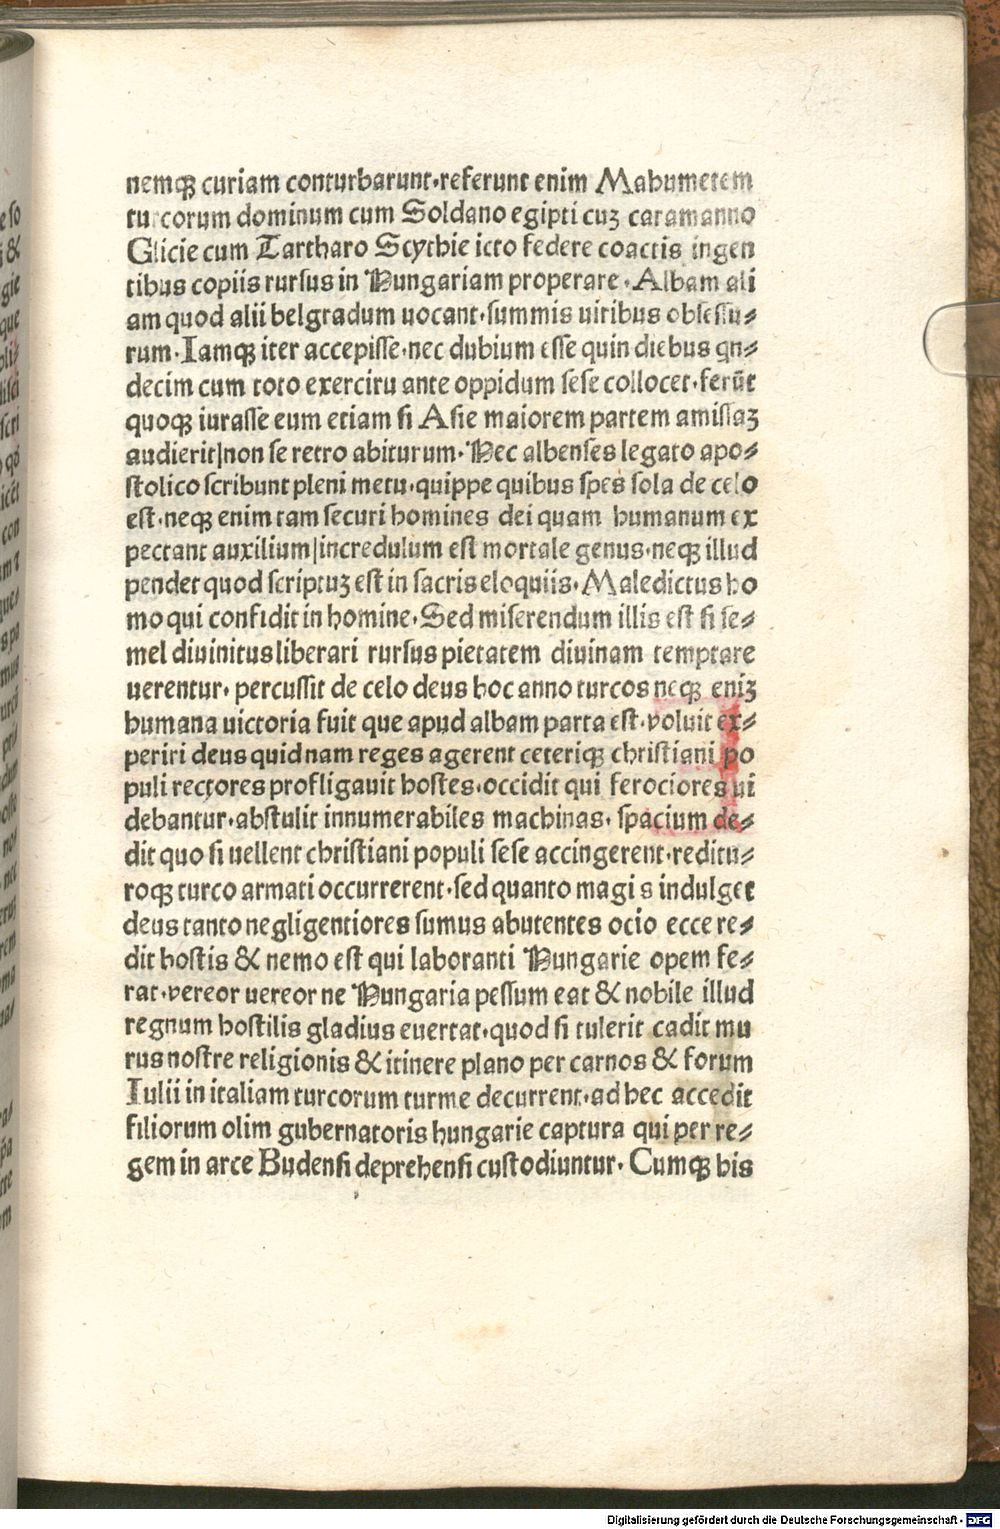 nemqꝫ curiam conturbarunt·referunt enim Mahumetem
turcorum dominum cum Soldano egipti cuꝫ caramanno
Glicie cum Tartharo Scythie icto federe coactis ingen
tibus copiis rursus in Hungariam properare·Albam ali
am quod alii belgradum uocant·summis uiribus obsessu⸗
rum·Iamqꝫ iter accepisse·nec dubium esse quin diebus qn⸗
decim cum toto exercitu ante oppidum sese collocet·ferūt
quoqꝫ iurasse eum etiam si Asie maiorem partem amissaꝫ
audierit|non se retro abiturum·Hec albenses legato apo⸗
stolico scribunt pleni metu·quippe quibus spes sola de celo
est·neqꝫ enim tam securi homines dei quam humanum ex
pectant auxilium|incredulum est mortale genus·neqꝫ illud
pendet quod scriptuꝫ est in sacris eloquiis·Maledictus ho
mo qui confidit in homine·Sed miserendum illis est si se⸗
mel diuinitus liberari rursus pietatem diuinam temptare
uerentur·percussit de celo deus hoc anno turcos neqꝫ eniꝫ
humana uictoria fuit que apud albam parta est·voluit ex⸗
periri deus quidnam reges agerent ceteriqꝫ christiani po
puli rectores profligauit hostes·occidit qui ferociores ui
debantur·abstulit innumerabiles machinas·spacium de⸗
dit quo si uellent christiani populi sese accingerent·reditu⸗
roqꝫ turco armati occurrerent·sed quanto magis indulget
deus tanto negligentiores sumus abutentes ocio ecce re⸗
dit hostis & nemo est qui laboranti Hungarie opem fe⸗
rat·vereor uereor ne Hungaria pessum eat & nobile illud
regnum hostilis gladius euertat·quod si tulerit cadit mu
rus nostre religionis & itinere plano per carnos & forum
Iulii in italiam turcorum turme decurrent·ad hec accedit
filiorum olim gubernatoris hungarie captura qui per re⸗
gem in arce Budensi deprehensi custodiuntur·Cumqꝫ his
Digitalisierung gefördert durch die Deutsche Forschungsgemeinschaft - DFG